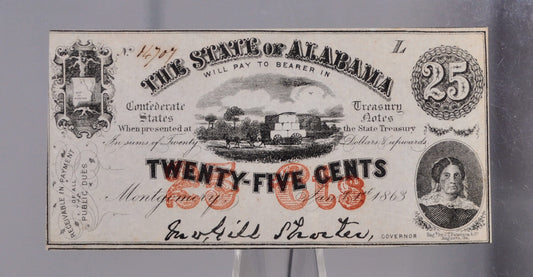 No. 14707
L
THE STATE OF ALABAMA
WILL PAY TO BEARER IN
25
Confederate States
Treasury Notes
When presented at
the State Treasury
In sums of Twenty
Dollars & upwards
TWENTY-FIVE CENTS
25
RECEIVABLE IN PAYMENT
OF ALL
PUBLIC DUES
Montgomery
Jan 1st 1863
Jno Gill Shorter,
GOVERNOR